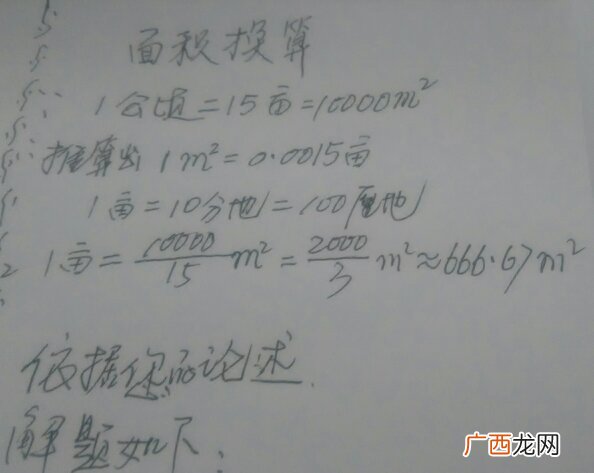 面积换算
1公顷=15亩=10000m²
推算出 1m²=0.0015亩
1亩=10分地=100厘地
1亩=10000/15 m²=2000/3 m²≈666.67m²
依据您的论述.
解题如下:
广西龙网